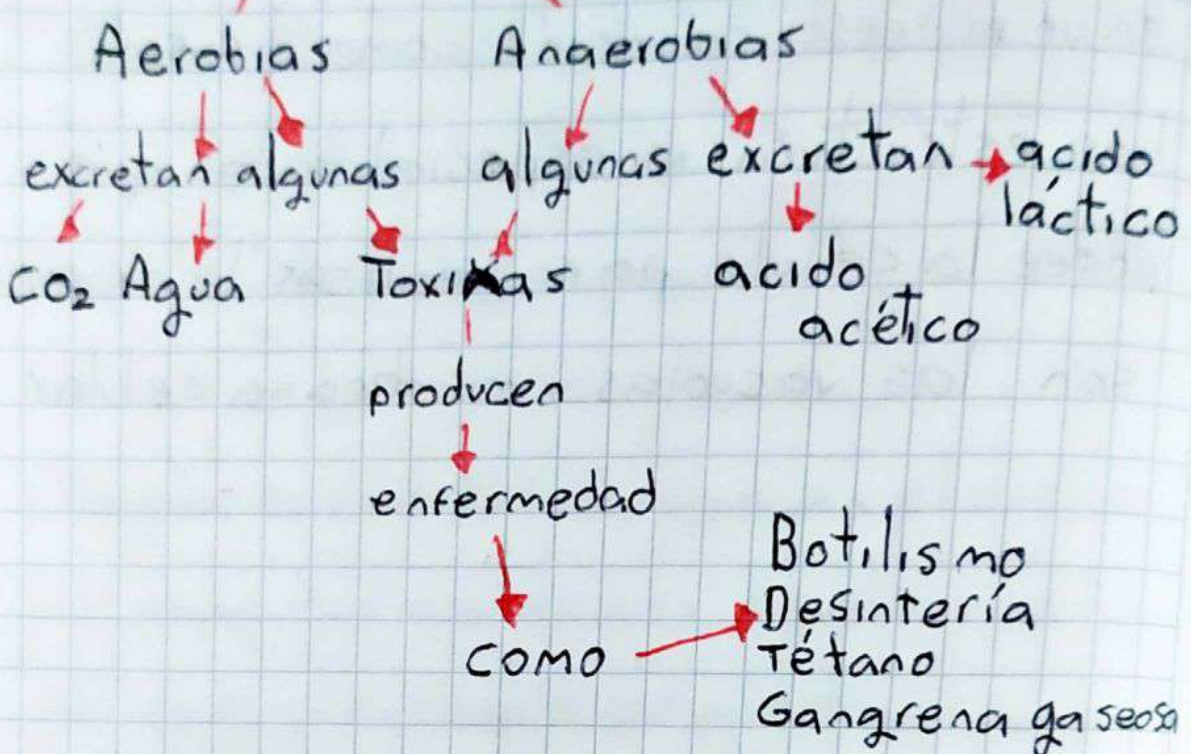 Aerobias Anaerobias
excretan algunas algunas excretan acido
láctico
CO₂ Agua Toxinas acido
acético
producen
enfermedad
como
Botilismo
Desintería
Tétano
Gangrena gaseosa